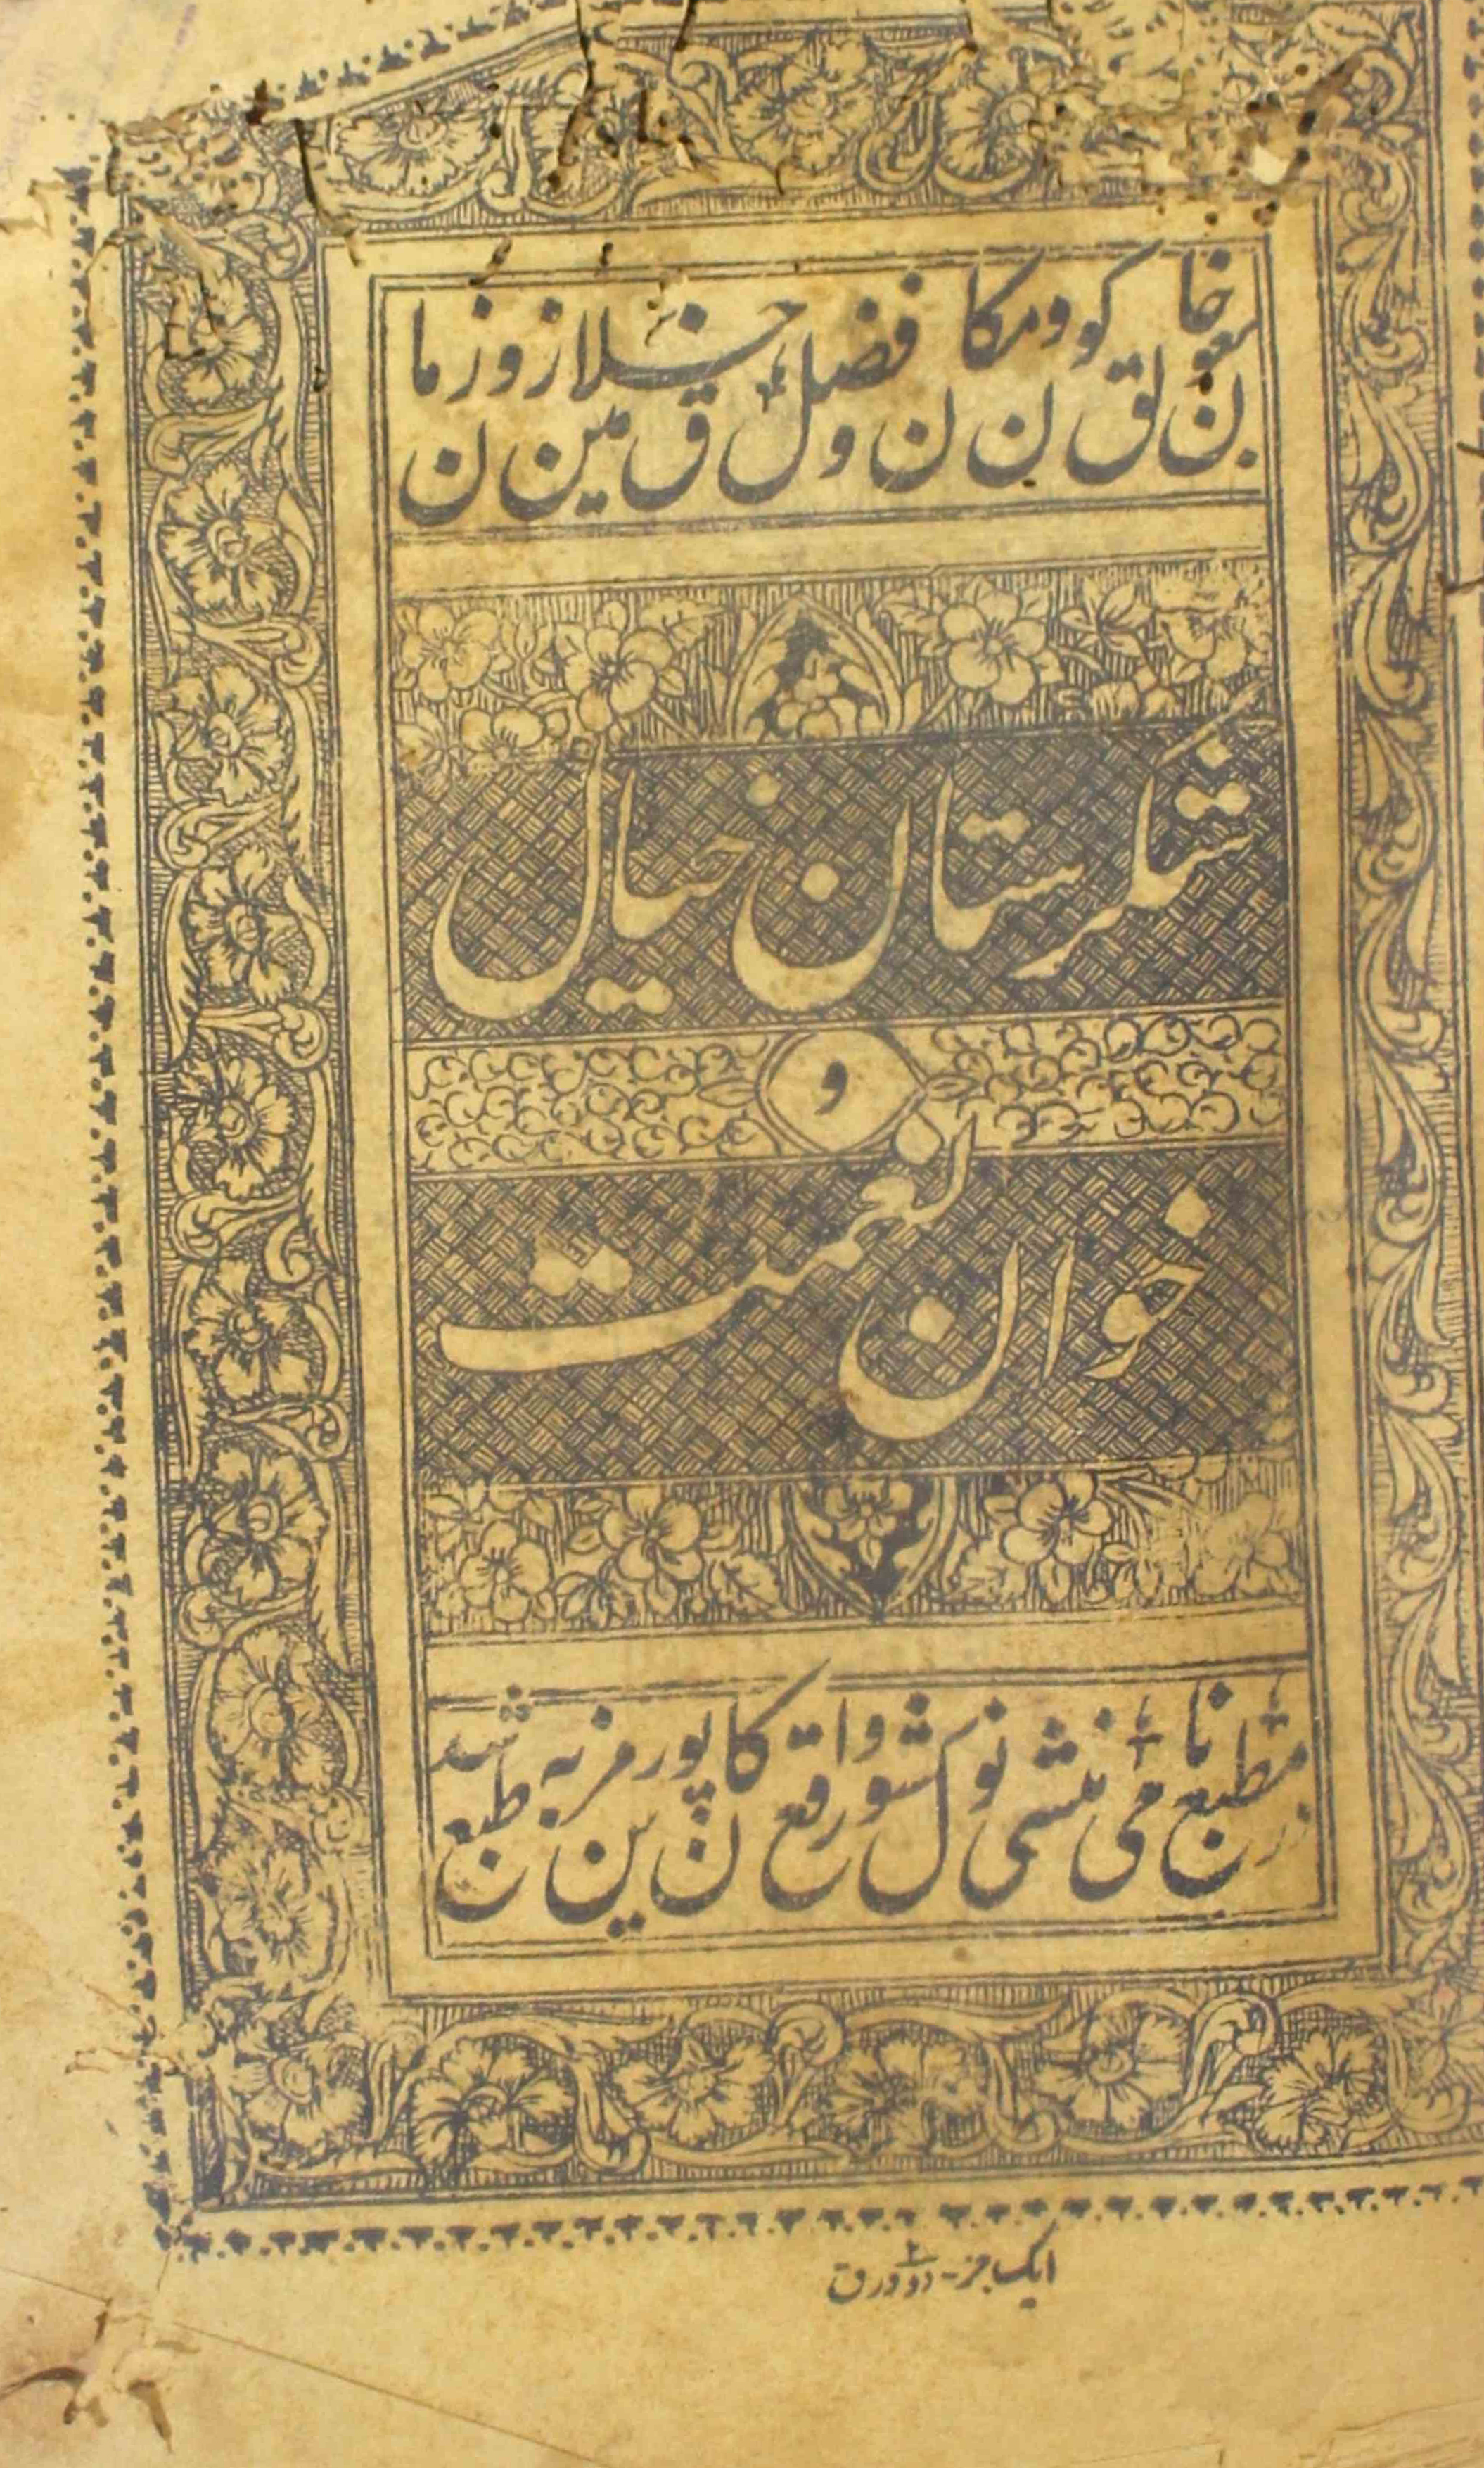 بعون خالق کون و مکان و فضل خلاق زمین و زمان
شکرستان خیال
و
خوان نعمت
در مطبع نامی منشی نولکشور واقع کانپور مزین به طبع شد
ایک جز - دو ورق